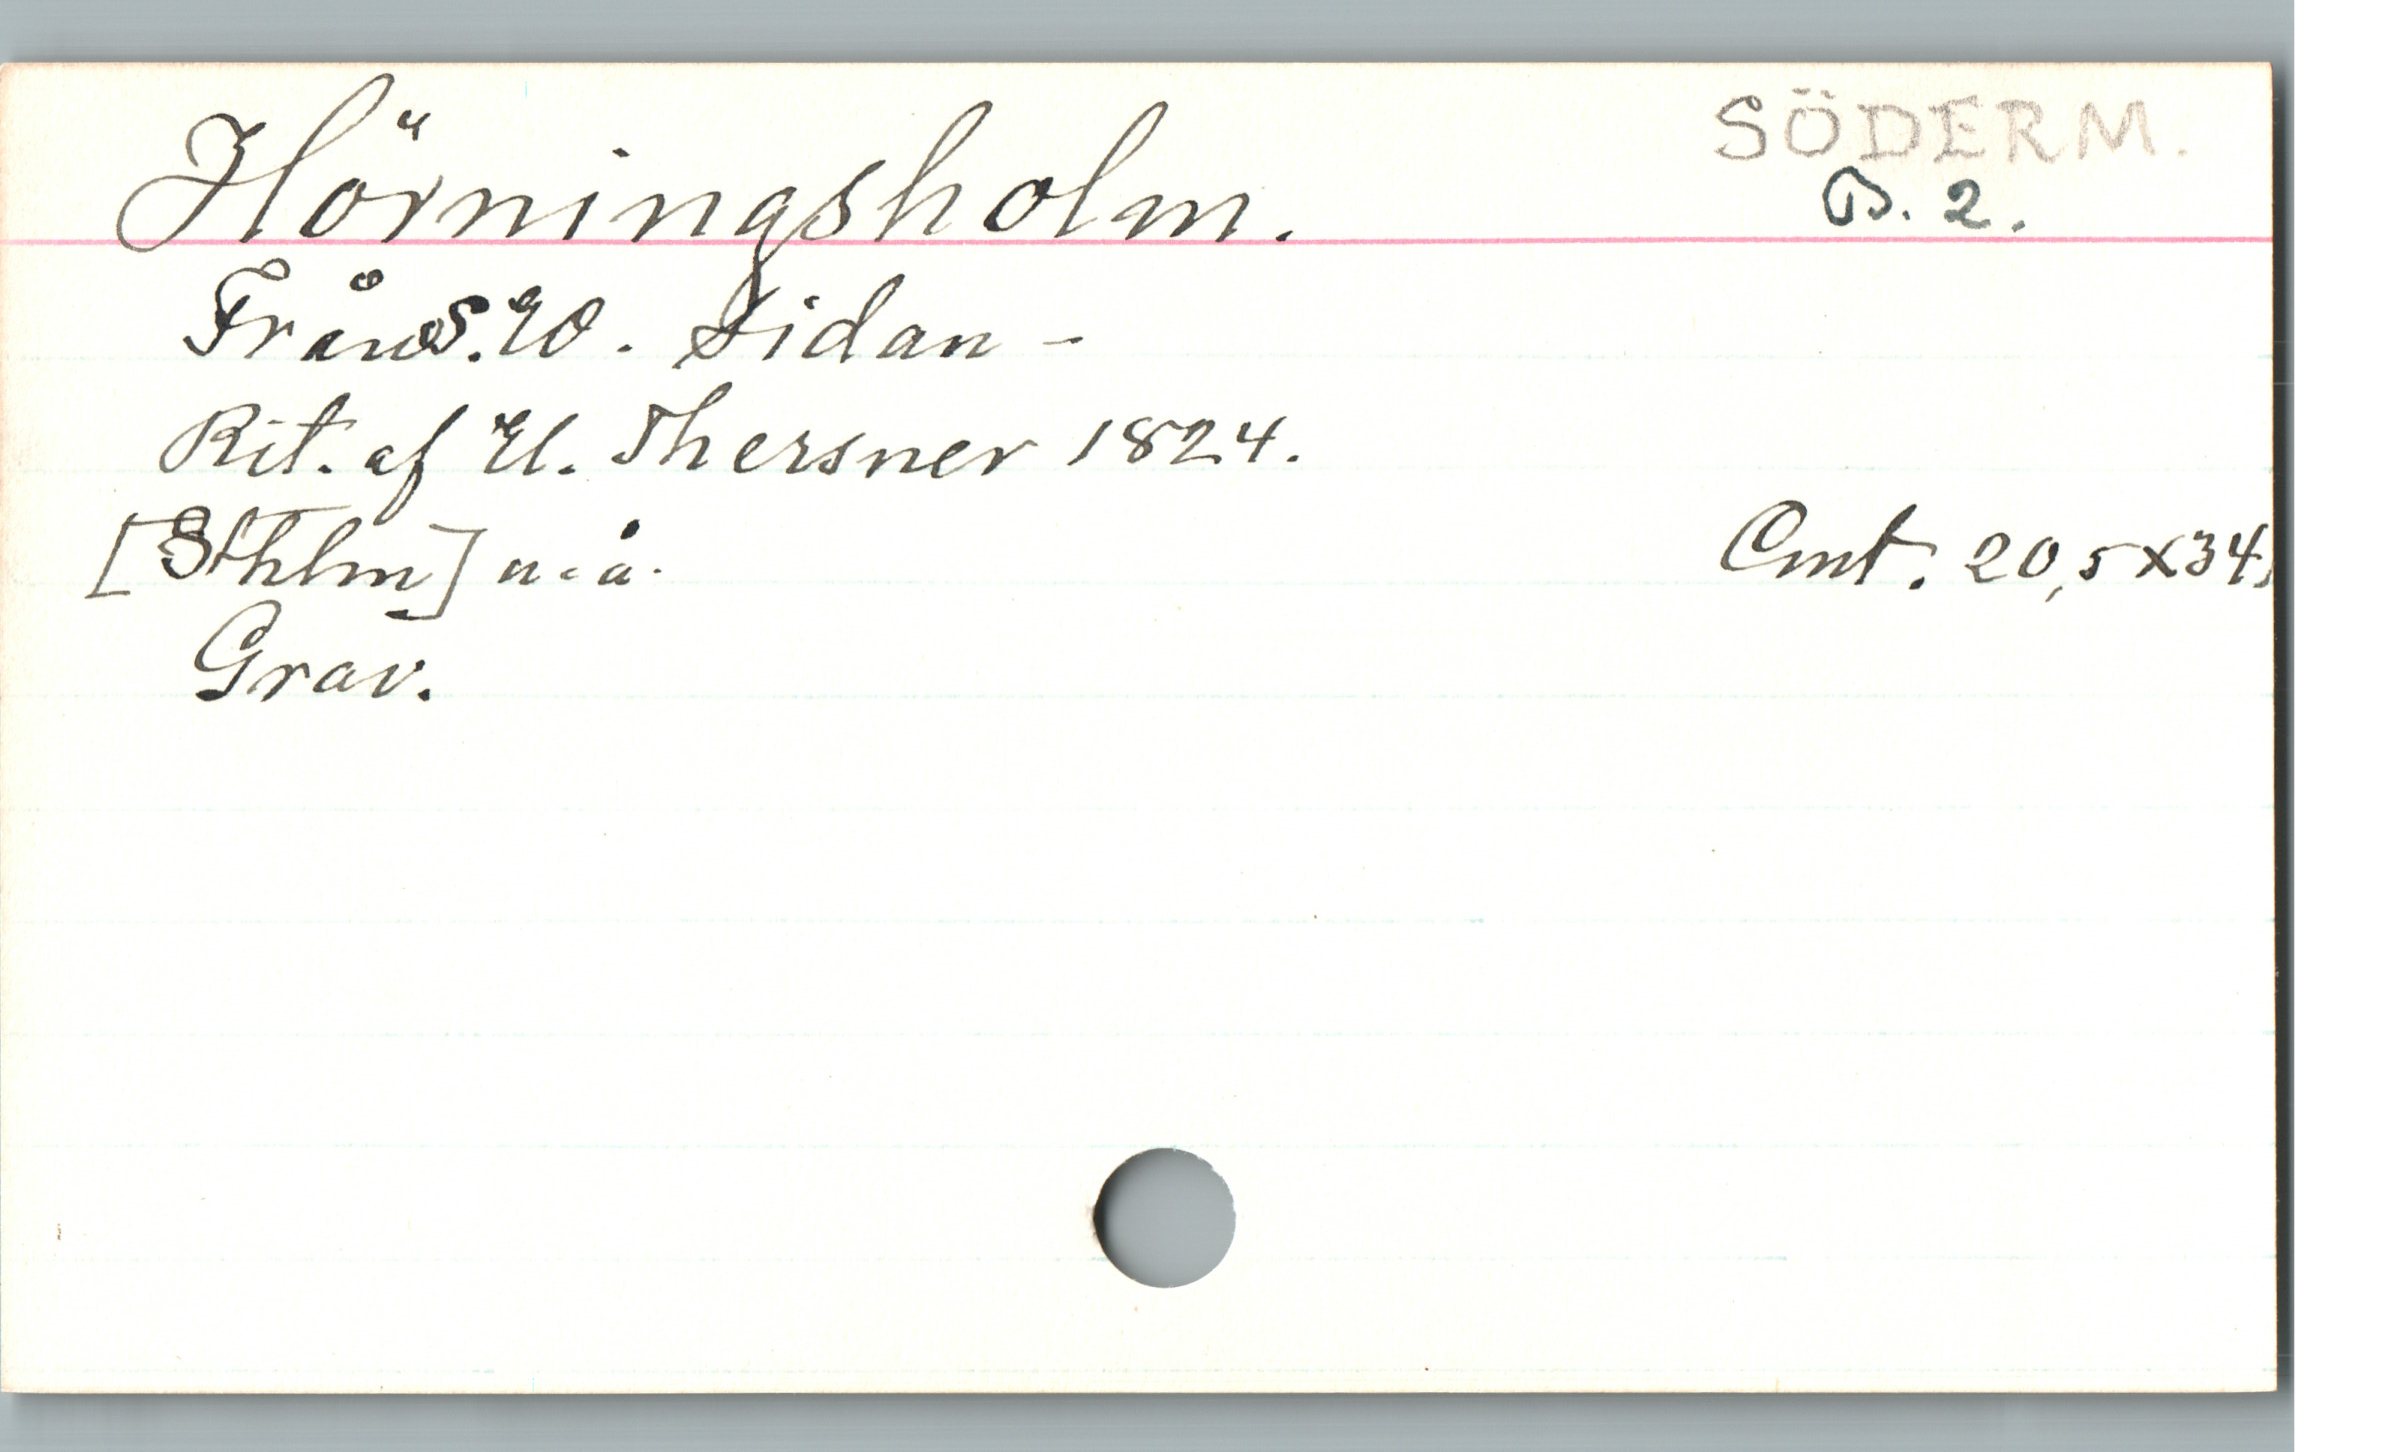 Hörningsholm.
SÖDERM.
B. 2.
Från S.W. Sidan -
Rit. af U. Thersner 1824.
[Sthlm] u. å.
Cmt. 20,5 x 34,
Grav.